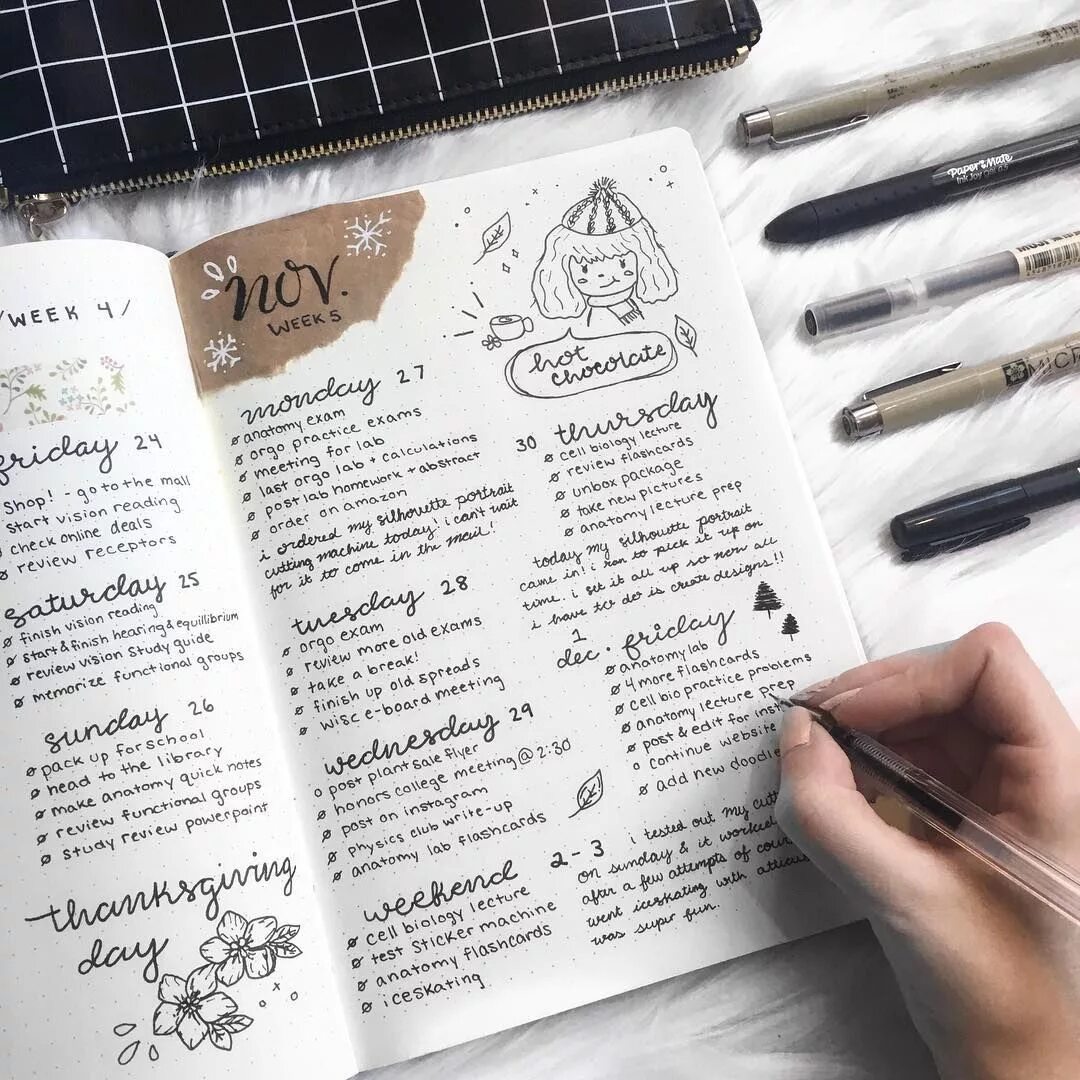 /WEEK 4/
friday 24
Shop! - go to the mall
start vision reading
check online deals
review receptors
saturday 25
finish vision reading
start & finish hearing & equilibrium
review vision study guide
memorize functional groups
sunday 26
pack up for school
head to the library
make anatomy quick notes
review functional groups
study review powerpoint
thanksgiving
day
nov.
WEEK 5
monday 27
anatomy exam
orgo practice exams
meeting for lab
last orgo lab + calculations
post lab homework + abstract
order on amazon
i ordered my silhouette portrait
cutting machine today! i can't wait
for it to come in the mail!
tuesday 28
orgo exam
review more old exams
take a break!
finish up old spreads
wisc e-board meeting
wednesday 29
post plant sale flyer
honors college meeting @ 2:30
post on instagram
physics club write-up
anatomy lab flashcards
weekend 2-3
cell biology lecture
test sticker machine
anatomy flashcards
iceskating
hot
chocolate
30 thursday
cell biology lecture
review flashcards
unbox package
take new pictures
anatomy lecture prep
today my silhouette portrait
came in! i ran to pick it up on
time. i set it all up so now all
i have to do is create designs!!
1
dec. friday
anatomy lab
4 more flashcards
cell bio practice problems
anatomy lecture prep
post & edit for inst
continue website
add new doodle
i tested out my cutt
on sunday & it worked
after a few attempts of cour
went iceskating with atticus
was super fun.
Paper Mate
InkJoy gel 0.5
MUJI
MICR